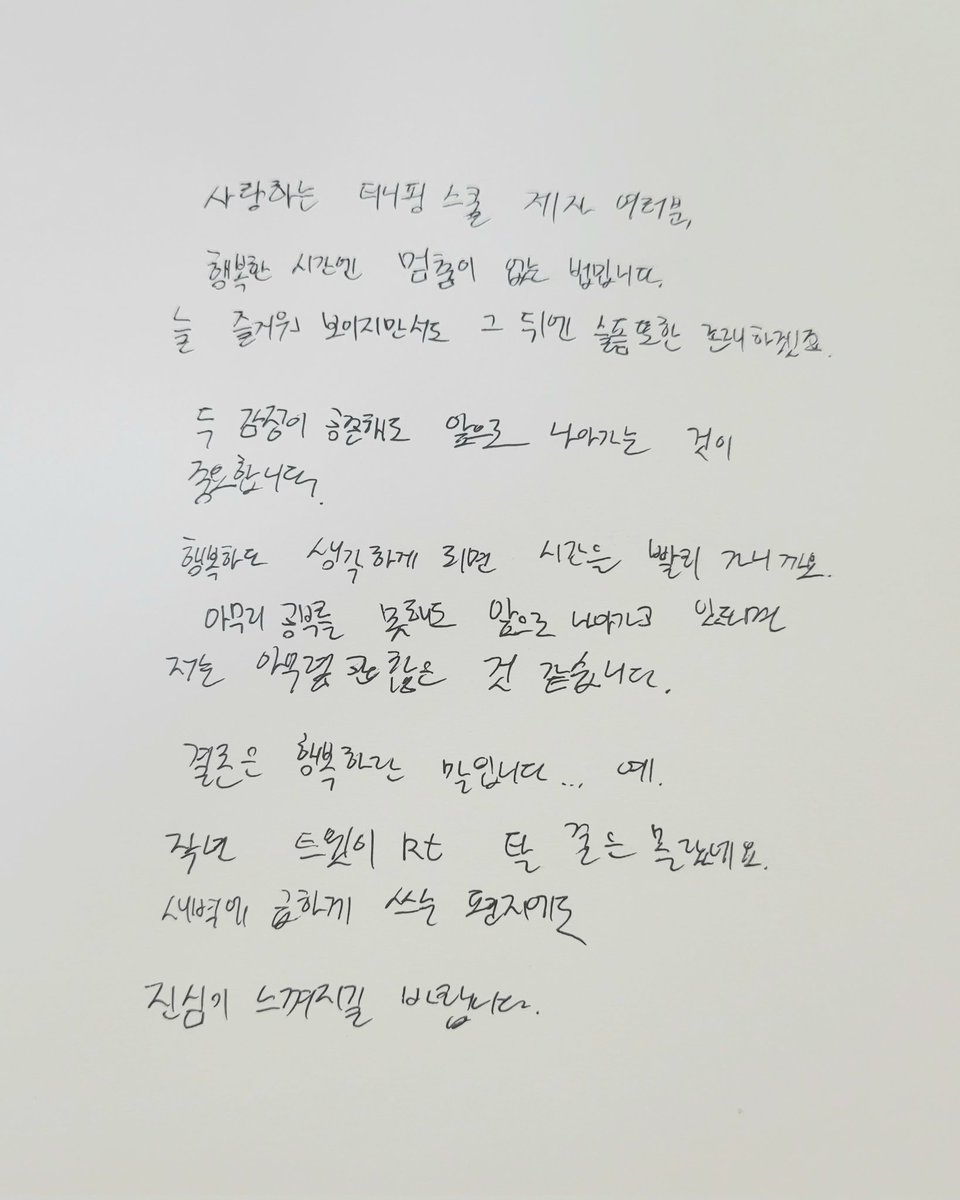 사랑하는 티니핑 스쿨 제자 여러분,
행복한 시간엔 멈춤이 없는 법입니다.
늘 즐거워 보이지만서도 그 뒤엔 슬픔또한 존재하겠죠.
두 감정이 공존해도 앞으로 나아가는 것이
중요합니다.
행복하다 생각하게 되면 시간은 빨리 가니까요.
아무리 공부를 못해도 앞으로 나아가고 있다면
저는 아무렴 괜찮은 것 같습니다.
결론은 행복하란 말입니다... 예.
작년 트윗이 Rt 탈 줄은 몰랐네요.
새벽에 급하게 쓰는 편지에도
진심이 느껴지길 바랍니다.